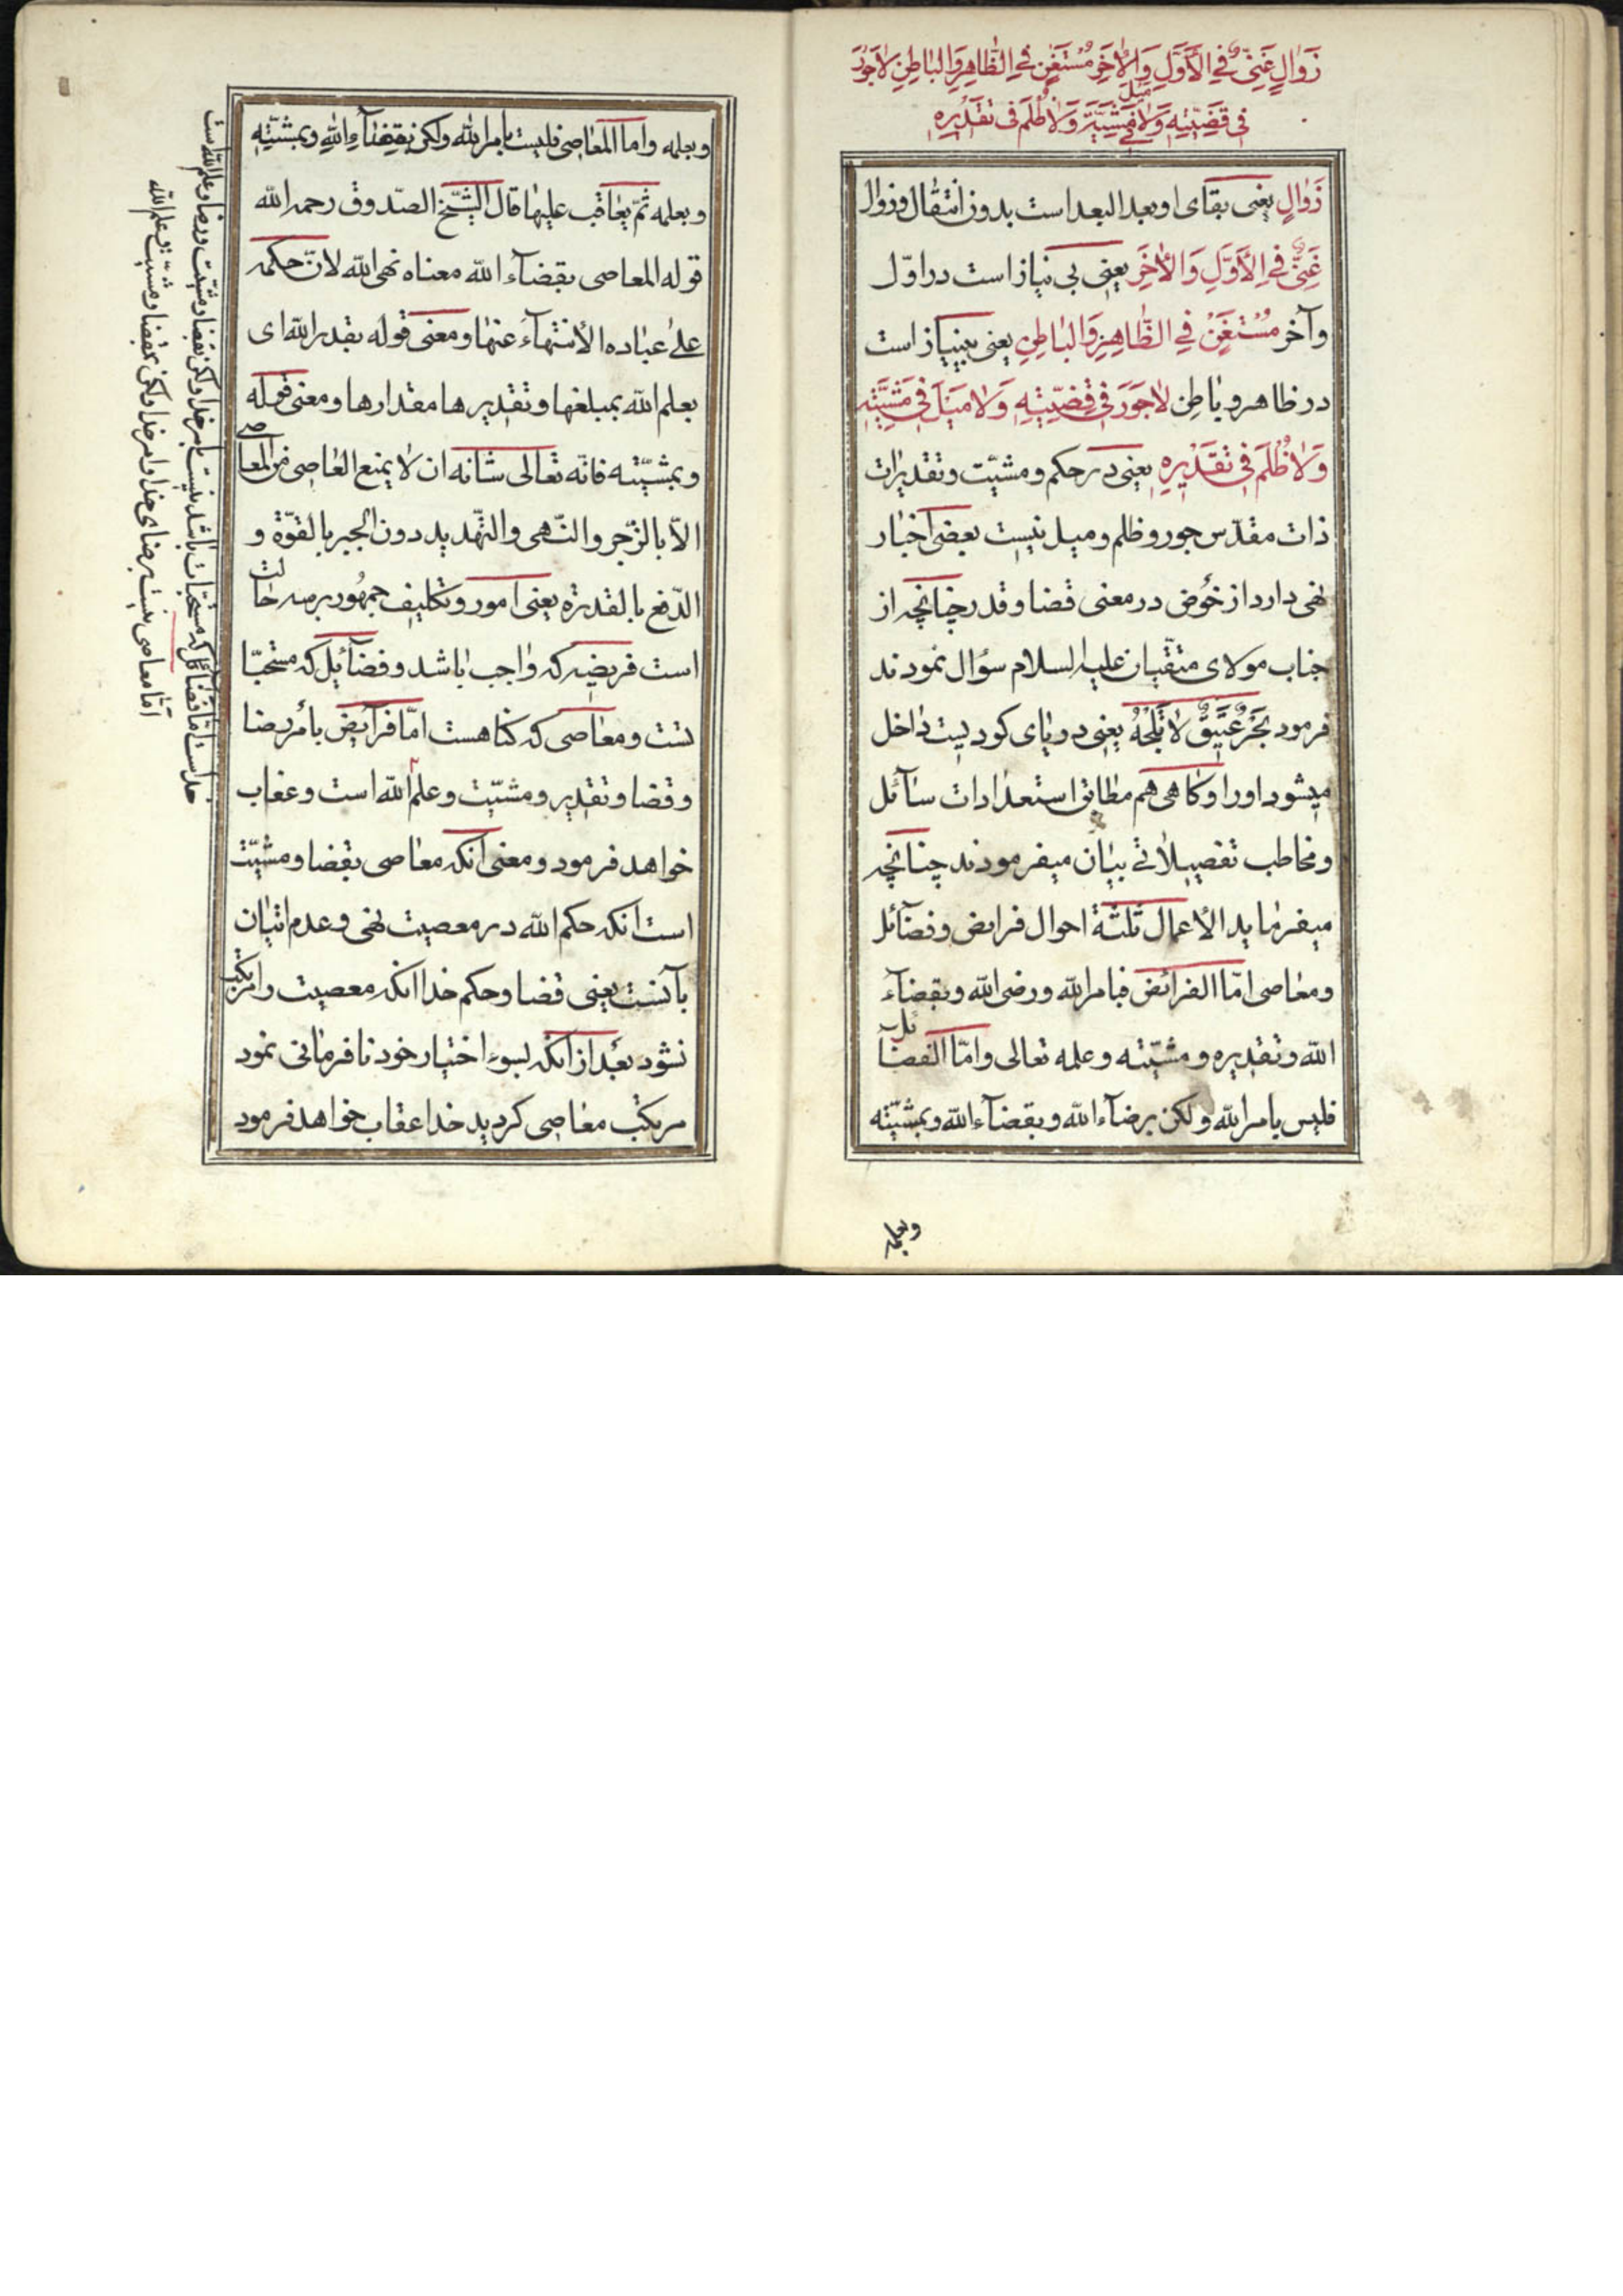 زَوٰالٍ غَنِیٌّ فِی الْأَوَّلِ وَالْأٰخَرِ مُسْتَغْنٍ فِی الظّٰاهِرِ وَالْبٰاطِنِ لاٰجَوْرَ
فِی قَضِیَّتِهِ وَلاٰ مَیْلَ فِی مَشِیَّتِهِ وَلاٰ ظُلْمَ فِی تَقْدِیرِهِ
زَوٰالٍ یعنی بقای او بعد البعد است بدون انتقال وزوال
غَنِیٌّ فِی الْأَوَّلِ وَالْأٰخَرِ یعنی بی نیاز است در اوّل
وآخر مُسْتَغْنٍ فِی الظّٰاهِرِ وَالْبٰاطِنِ یعنی بینیاز است
در ظاهر و باطن لاٰجَوْرَ فِی قَضِیَّتِهِ وَلاٰ مَیْلَ فِی مَشِیَّتِهِ
وَلاٰ ظُلْمَ فِی تَقْدِیرِهِ یعنی در حکم و مشیّت و تقدیرات
ذات مقدّس جور و ظلم و میل نیست بعضی اخبار
نهی دارد از خوض در معنی قضا و قدر چنانچه از
جناب مولای متقیان علیه السلام سؤال نمودند
فرمود بَحْرٌ عَمِیقٌ لاٰ تَلِجْهُ یعنی دریای کودیست داخل
میشود اورا و کاهی هم مطابق استعدادات سآئل
ومخاطب تفصیلاتی بیان میفرمودند چنانچه
میفرماید الأعمال ثلثة احوال فرایض وفضآئل
ومعاصی امّا الفرائض فبامرالله ورضی الله وبقضآء
الله وتقدیره ومشیّته وعلمه تعالی وامّا الفضائل
فلیس بامرالله ولکن برضآء الله وبقضآء الله وبمشیّته
وبعلمه
وبعلمه واما المعاصی فلیست بامرالله ولکن بقضآء الله وبمشیّته
وبعلمه ثمّ یعاقب علیها قال الشیّخ الصّدوق رحمه الله
قوله المعاصی بقضآء الله معناه نهی الله لانّ حکمه
علی عباده الأنتهآء عنها ومعنی قوله بقدر الله ای
بعلم الله بمبلغها وتقدیرها مقدارها ومعنی قوله
وبمشیّته فانّه تعالی شانه ان لا یمنع العاصی من المعاصی
الاّ بالزّجر والنّهی والتّهدید دون الجبر بالقوّة و
الدّفع بالقدرة یعنی امور وتکلیف جمهور بر سه حالت
است فریضه که واجب باشد وفضآئل که مستحبّا
تست ومعاصی که کناهست امّا فرآئض بأمر رضا
وقضا وتقدیر ومشیّت وعلم الله است وعقاب
خواهد فرمود ومعنی آنکه معاصی بقضا ومشیّت
است آنکه حکم الله در معصیت نهی وعدم اتیان
بآنست یعنی قضا وحکم خدا انکه معصیت را مرتکب
نشود بعد از آنکه بسوء اختیار خود نافرمانی نمود
مرتکب معاصی کردید خدا عقاب خواهد فرمود
خداست امّا فضآئل که مستحبّات باشد نیست بامر خدا ولکن بقضا ومشیّت ورضا وعلم الله است
امّا معاصی نیست برضای خدا وامر خدا ولکن بقضا ومشیّت وعلم الله